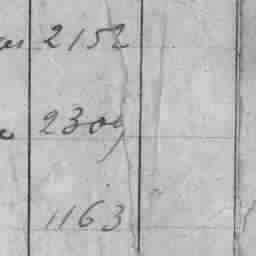 2152
2309
1163